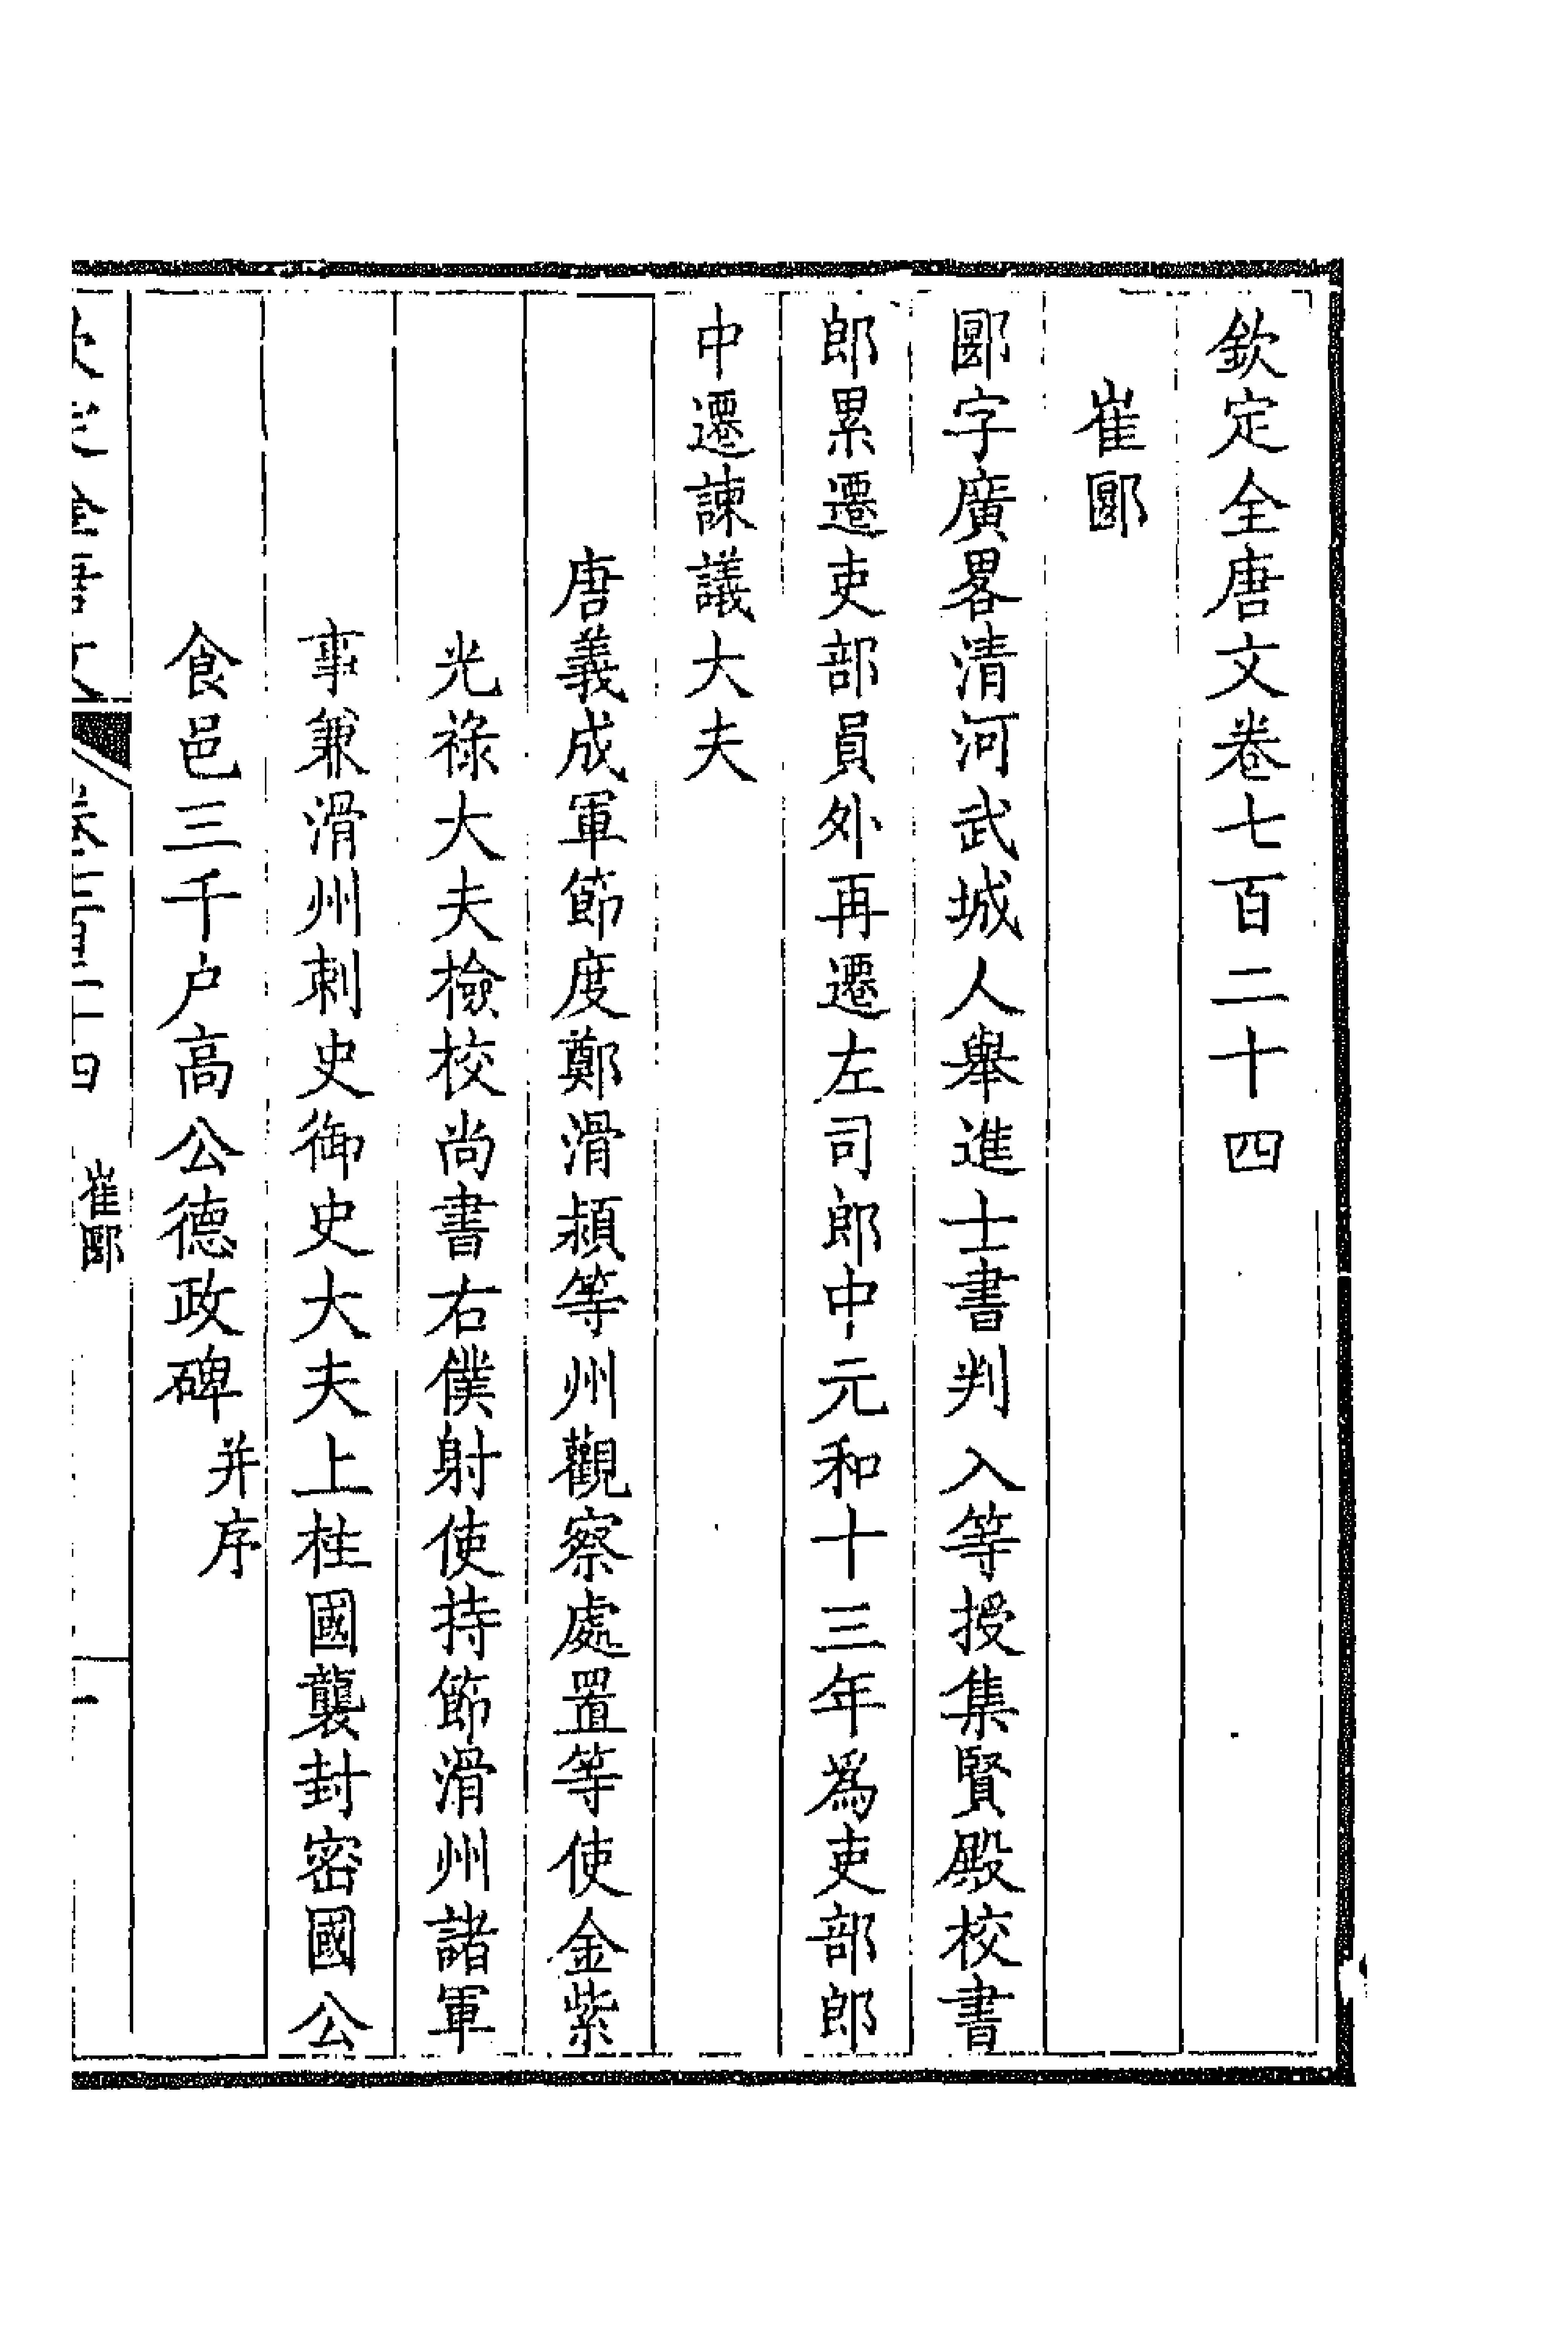 欽定全唐文卷七百二十四
崔郾
郾字廣畧清河武城人舉進士書判入等授集賢殿校書
郎累遷吏部員外再遷左司郎中元和十三年爲吏部郎
中遷諫議大夫
唐義成軍節度鄭滑潁等州觀察處置等使金紫
光祿大夫檢校尚書右僕射使持節滑州諸軍
事兼滑州刺史御史大夫上柱國襲封密國公
食邑三千户高公德政碑并序
崔郾